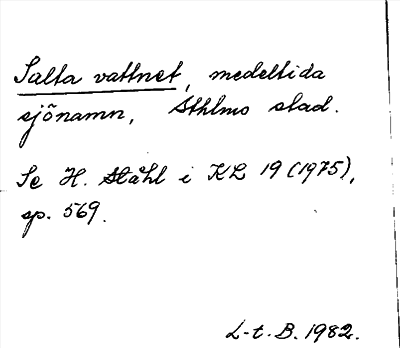 Salta vattnet, medeltida
sjönamn, Sthlms stad.
Se H. Ståhl i KL 19 (1975),
sp. 569.
L-t. B. 1982.